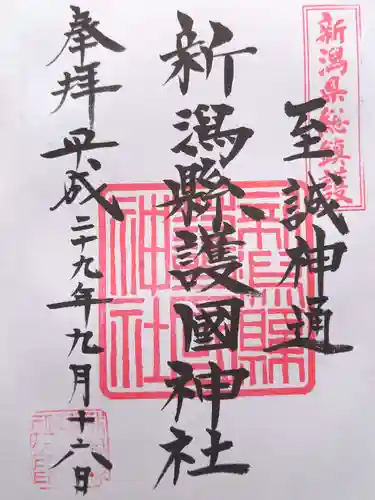 新潟県総鎮護
至誠神通
新潟縣護國神社
奉拝
平成二十九年九月十六日